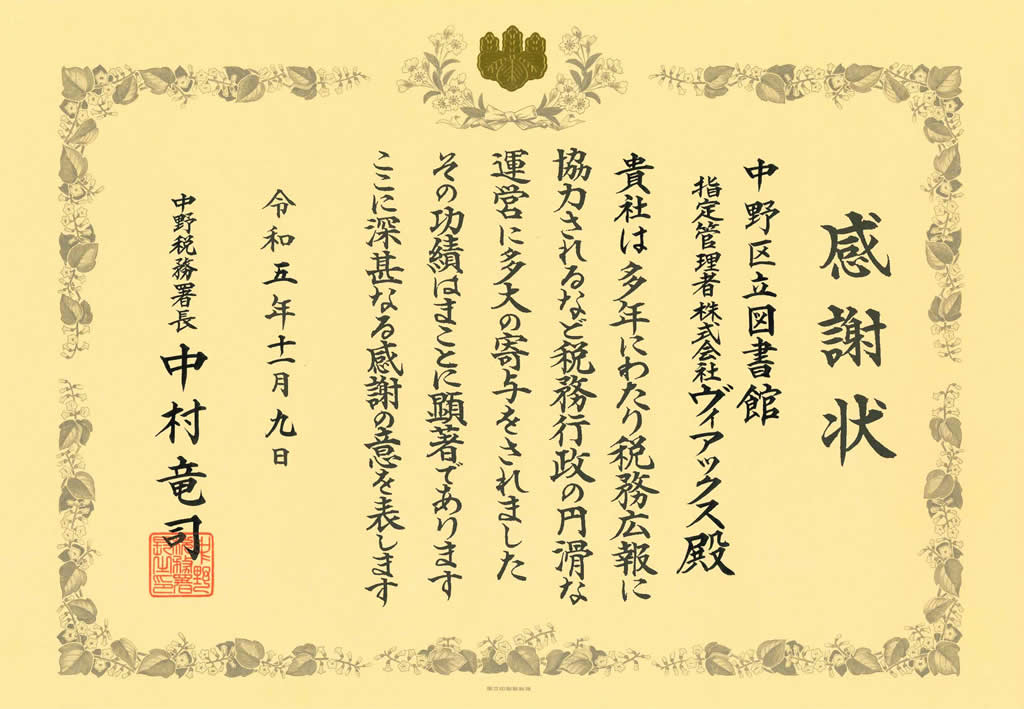 感謝状
中野区立図書館
指定管理者 株式会社ヴィアックス殿
貴社は多年にわたり税務広報に
協力されるなど税務行政の円滑な
運営に多大の寄与をされました
その功績はまことに顕著であります
ここに深甚なる感謝の意を表します
令和五年十一月九日
中野税務署長 中村竜司
中野税務署長之印